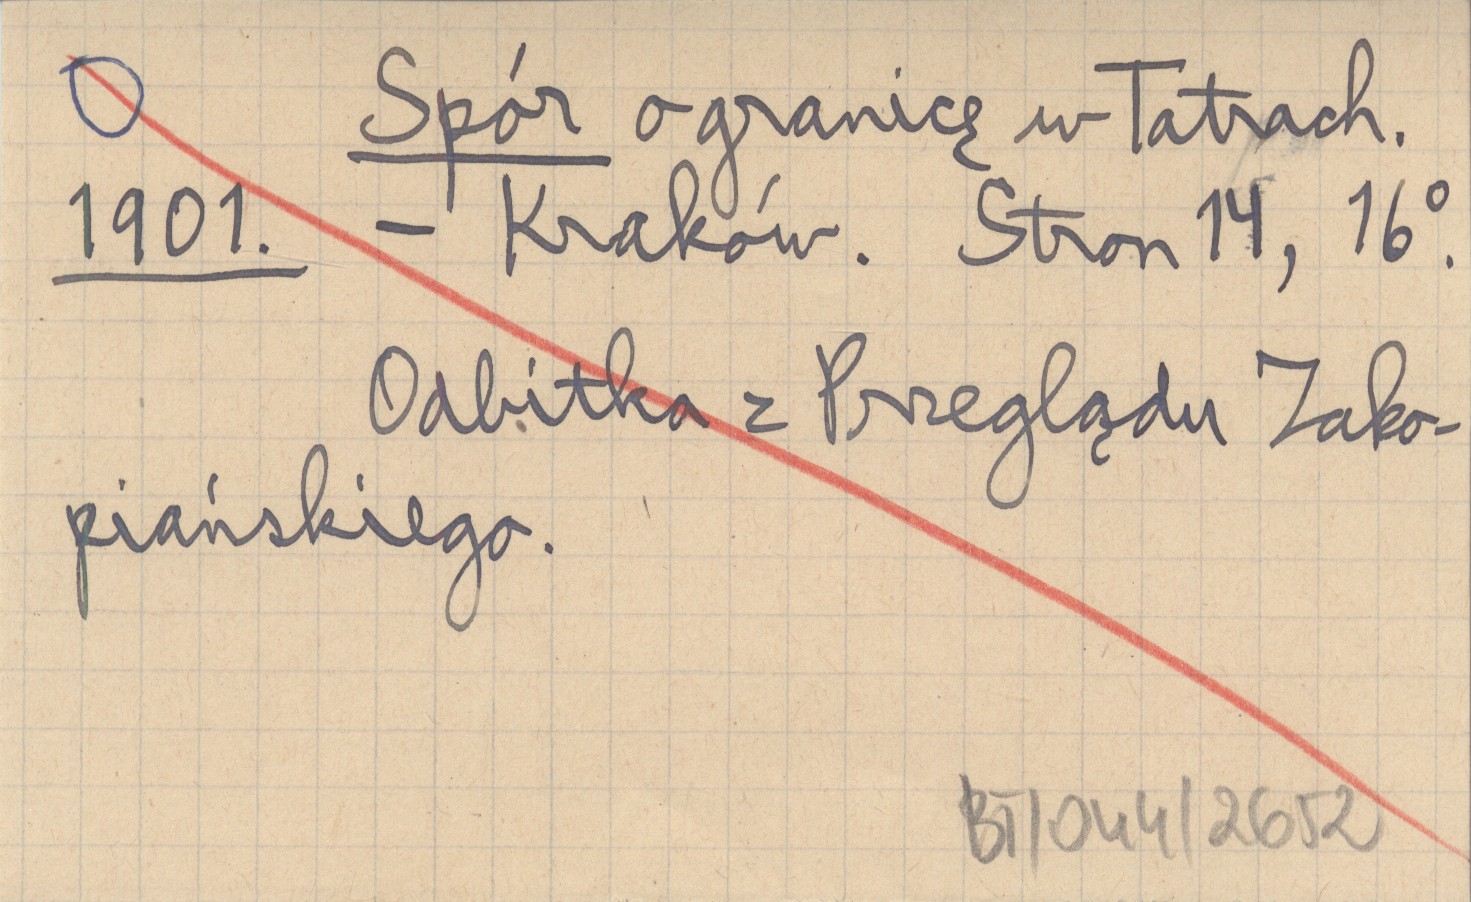 Spór o granicę w Tatrach.
1901. - Kraków. Stron 14, 16°.
Odbitka z Przeglądu Zako-
piańskiego.
BT/044/2652